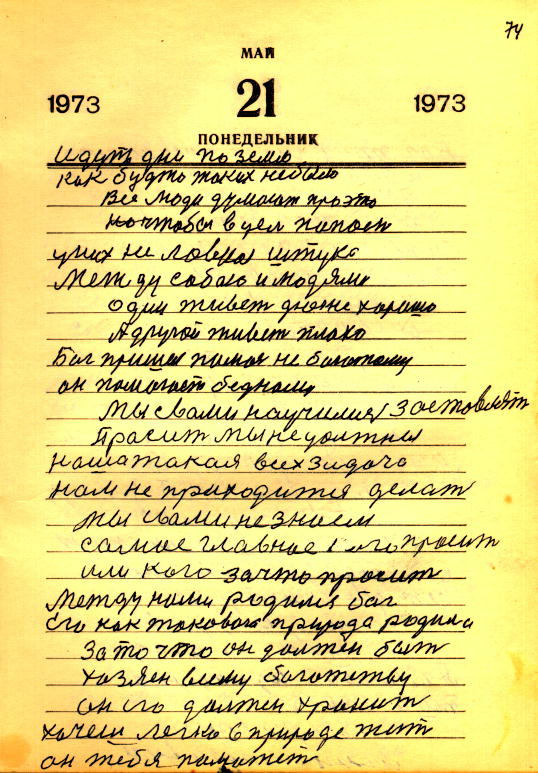 74
МАЙ
1973 21 1973
ПОНЕДЕЛЬНИК
Идуть дни по земле
как будто таких небыло
Все люди думают проэто
Но чтобы в цел попост
уних не ловкая штука
Между собаю и людями
Один живет дюже хорошо
А другой живет плохо
Бог пришел помоч не богатому
он помогаеть бедному
Мы свами научились заставлят
Прасит мы недолжны
нашатакая всех задача
нам не приходится делат
мы свами незнаем
самое главное кого просит
или кого зачто просит
Между нами родился бог
Его как таковога природа родила
Зато что он должен быт
хозяен всему богатству
он его должен хранит
хочеш легко в природе жит
он тебя поможет